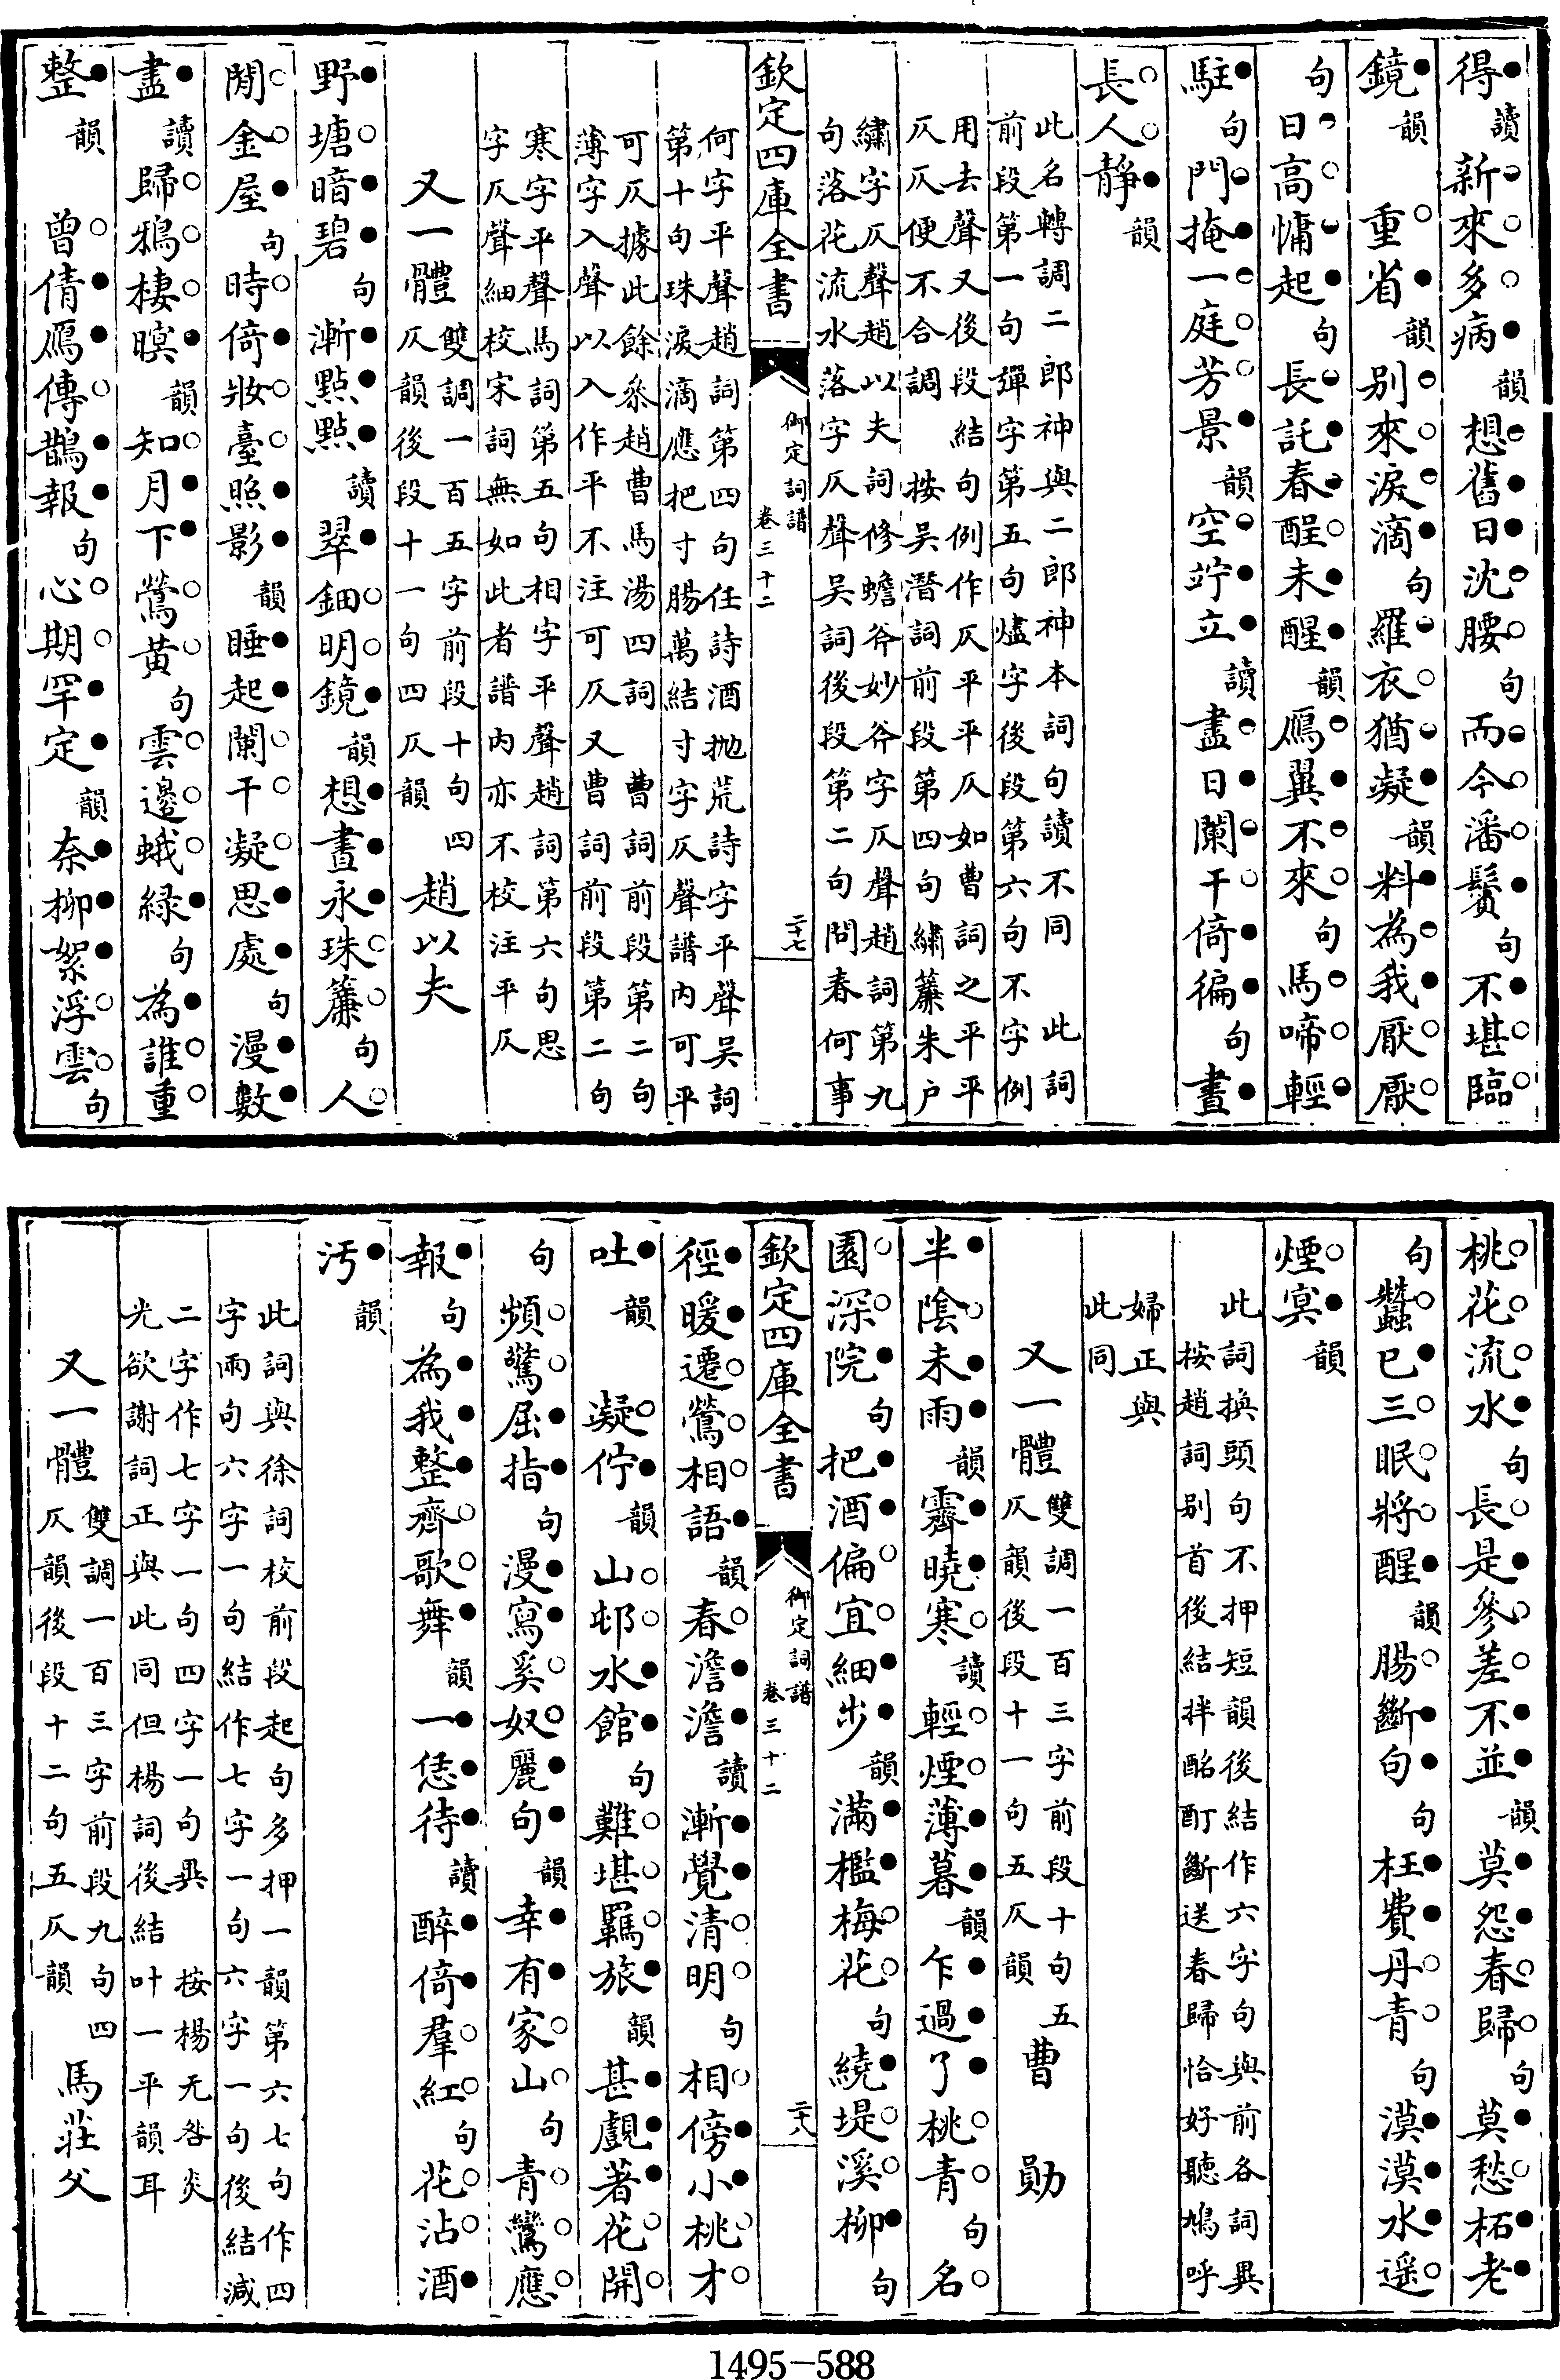 得讀新來多病韻想舊日沈腰句而今潘鬢句不堪臨
鏡韻 重省韻别來淚滴句羅衣猶凝韻料為我厭厭
句日高慵起句長託春酲未醒韻鴈翼不來句馬啼輕
駐句門掩一庭芳景韻空竚立讀盡日闌干倚徧句晝
長人靜韻
此名轉調二郎神與二郎神本詞句讀不同 此詞
前段第一句彈字第五句燼字後段第六句不字例
用去聲又後段結句例作仄平平仄如曹詞之平平
仄仄便不合調 按吳潛詞前段第四句繡簾朱户
繡字仄聲趙以夫詞修蟾斧妙斧字仄聲趙詞第九
句落花流水落字仄聲吳詞後段第二句問春何事
欽定四庫全書 御定詞譜 卷三十二 二十七
何字平聲趙詞第四句任詩酒抛荒詩字平聲吳詞
第十句珠淚滴應把寸腸萬結寸字仄聲譜内可平
可仄據此餘叅趙曹馬湯四詞 曹詞前段第二句
薄字入聲以入作平不注可仄又曹詞前段第二句
寒字平聲馬詞第五句相字平聲趙詞第六句思
字仄聲細校宋詞無如此者譜内亦不校注平仄
又一體 雙調一百五字前段十句四
仄韻後段十一句四仄韻 趙以夫
野塘暗碧句漸點點讀翠鈿明鏡韻想晝永珠簾句人
閒金屋句時倚妝臺照影韻睡起闌干凝思處句漫數
盡讀歸鴉棲暝韻知月下鶯黄句雲邊蛾緑句為誰重
整韻 曾倩鴈傳鵲報句心期罕定韻柰柳絮浮雲句
桃花流水句長是參差不並韻莫怨春歸句莫愁柘老
句蠶已三眠將醒韻腸斷句句枉費丹青句漠漠水遥
煙寞韻
此詞換頭句不押短韻後結作六字句與前各詞異
按趙詞别首後結拌酩酊斷送春歸恰好聽鳩呼
婦正與
此同
又一體 雙調一百三字前段十句五
仄韻後段十一句五仄韻 曹 勛
半陰未雨韻霽曉寒讀輕煙薄暮韻乍過了桃青句名
園深院句把酒偏宜細步韻滿檻梅花句繞堤溪柳句
欽定四庫全書 御定詞譜 卷三十二 二十八
徑暖遷鶯相語韻春澹澹讀漸覺清明句相傍小桃才
吐韻 凝佇韻山邨水館句難堪羈旅韻甚覷著花開
句頻驚屈指句漫寫奚奴麗句韻幸有家山句青鸞應
報句為我整齊歌舞韻一恁待讀醉倚羣紅句花沾酒
汚韻
此詞與徐詞校前段起句多押一韻第六七句作四
字兩句六字一句結作七字一句六字一句後結減
二字作七字一句四字一句異 按楊无咎炎
光欲謝詞正與此同但楊詞後結叶一平韻耳
又一體 雙調一百三字前段九句四
仄韻後段十二句五仄韻 馬莊父
1495—588